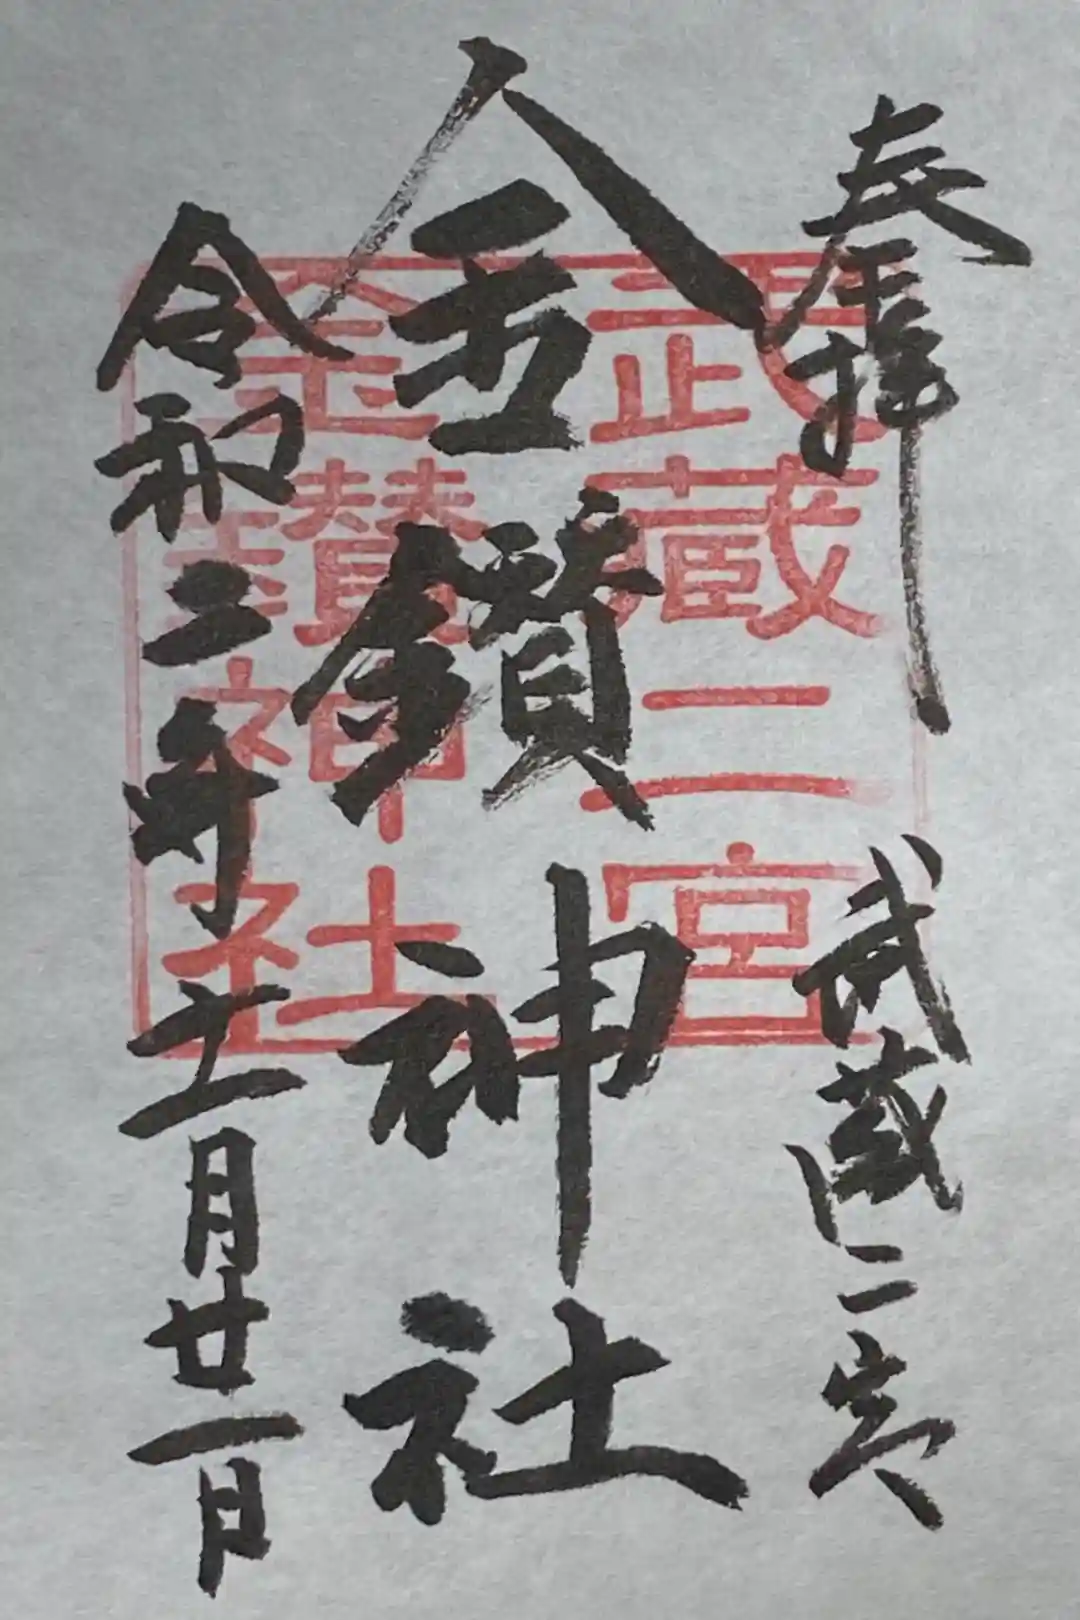 奉拝 武蔵二宮
金鑚神社
令和二年十一月廿一日
武蔵二宮
金鑚神社